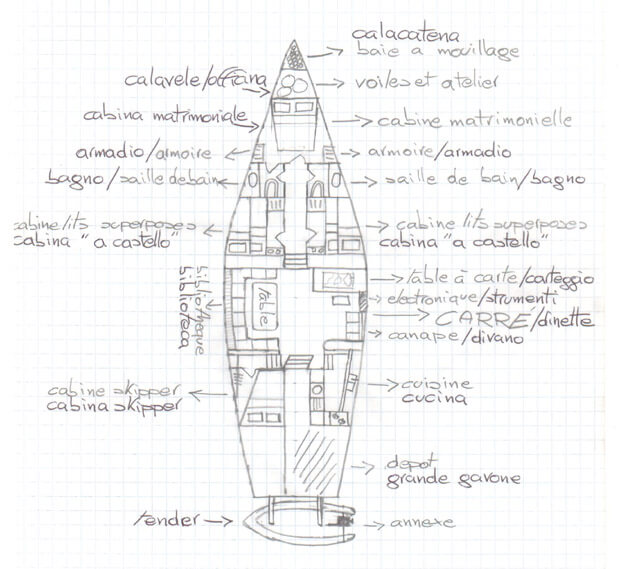 calacatena
baie a mouillage
calavele/officina
voiles et atelier
cabina matrimoniale
cabine matrimonielle
armadio/armoire
armoire/armadio
bagno/saille debain
saille de bain/bagno
cabine/lits superposes
cabina "a castello"
cabine/lits superposes
cabina "a castello"
table à carte/carteggio
electronique/strumenti
CARRE/dinette
canape/divano
bibliotheque
biblioteca
table
cabine skipper
cabina skipper
cuisine
cucina
depot
grande gavone
tender
annexe